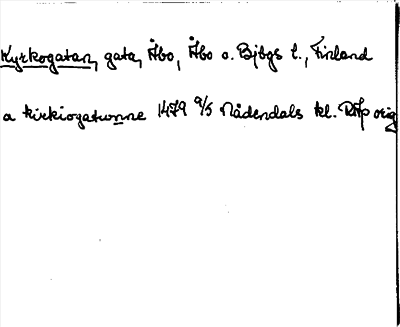 Kyrkogatan, gata, Åbo, Åbo o. Bjbgs l., Finland
a kirkiogatwonne 1479 9/5 Nådendals kl. RAp orig